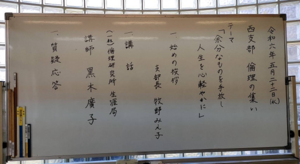 令和六年 五月二十二日(水)
西支部 倫理の集い
テーマ
「余分なものを手放し
人生を心軽やかに」
一 始めの挨拶
支部長 牧野みん子
一 講話
(一社)倫理研究所 生涯局
講師 黒木廣子
一 質疑応答